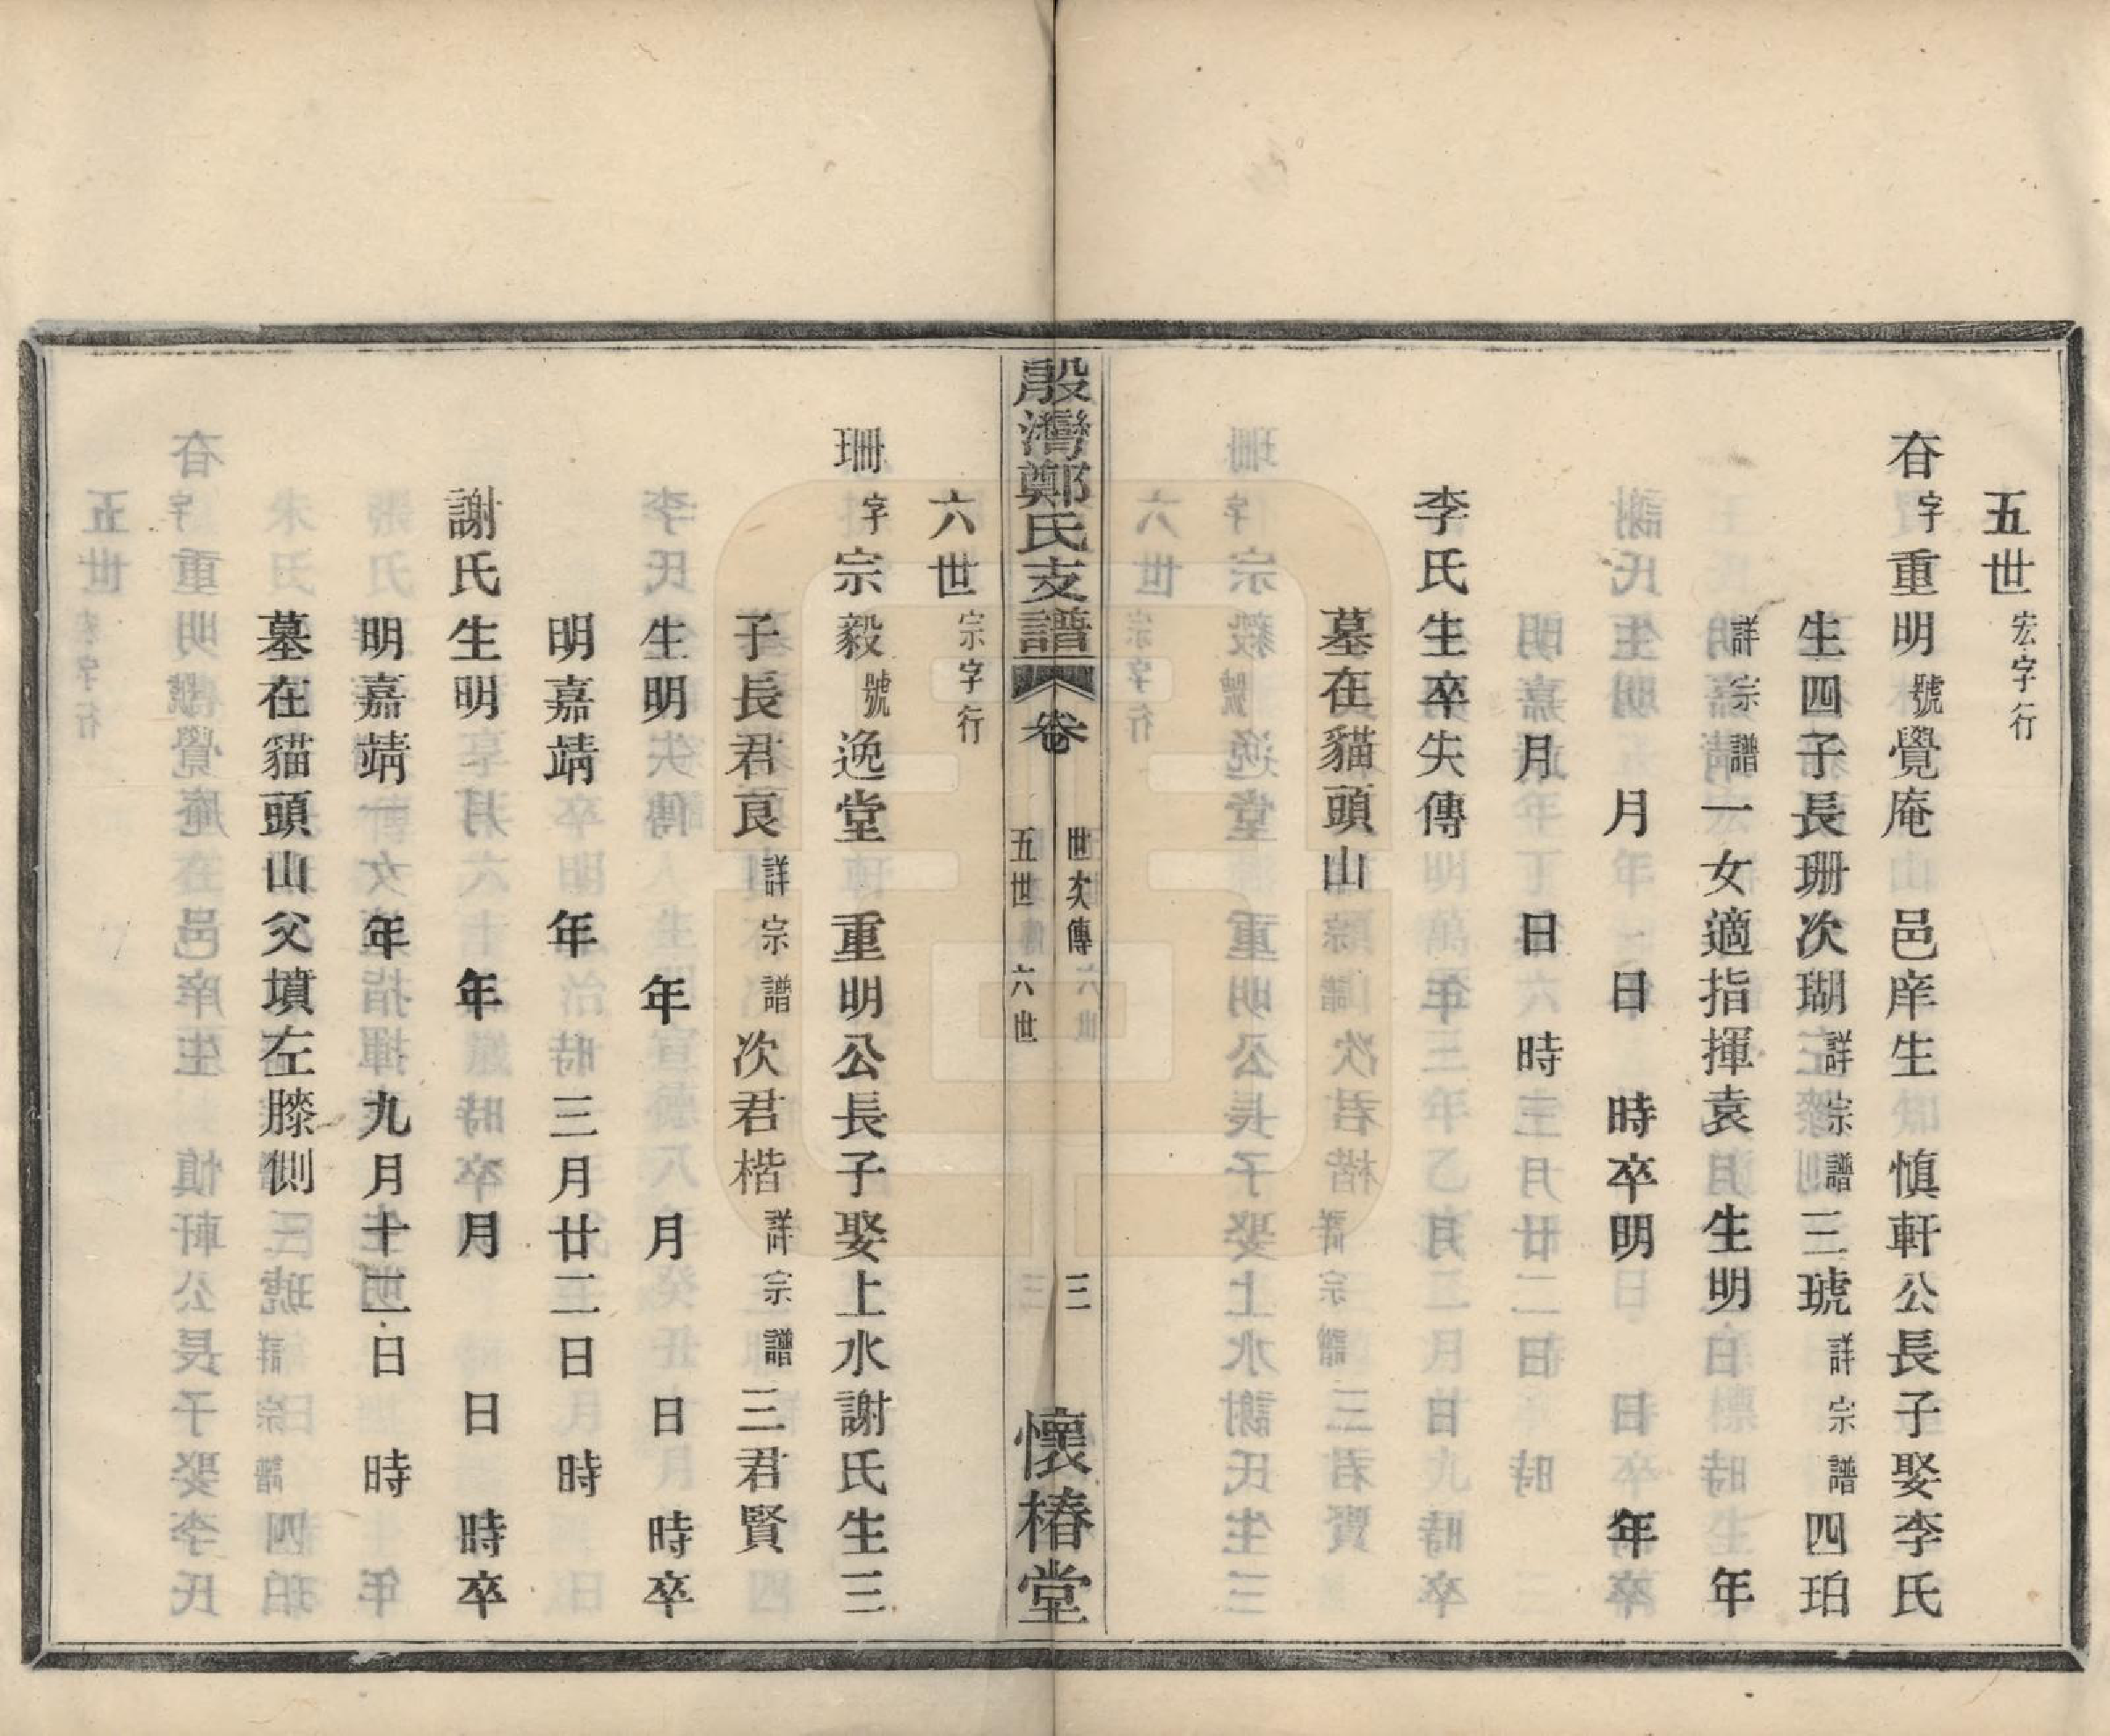 五世宏字行
夻字重明號覺庵 邑庠生 慎軒公長子娶李氏
生四子長珊次瑚詳宗譜三琥詳宗譜四珀
詳宗譜一女適指揮袁 生明 年
月 日 時卒明 年
月 日 時
李氏生卒失傳
墓在貓頭山
殷灣鄭氏支譜 卷
世次傳 三
五世 六世
懷椿堂
六世宗字行
珊字宗毅號逸堂 重明公長子娶上水謝氏生三
子長君良詳宗譜次君楷詳宗譜三君賢
生明 年 月 日 時卒
明嘉靖 年 三月廿二日 時
謝氏生明 年 月 日 時卒
明嘉靖 年 九月十二日 時
墓在貓頭山父墳左膝側